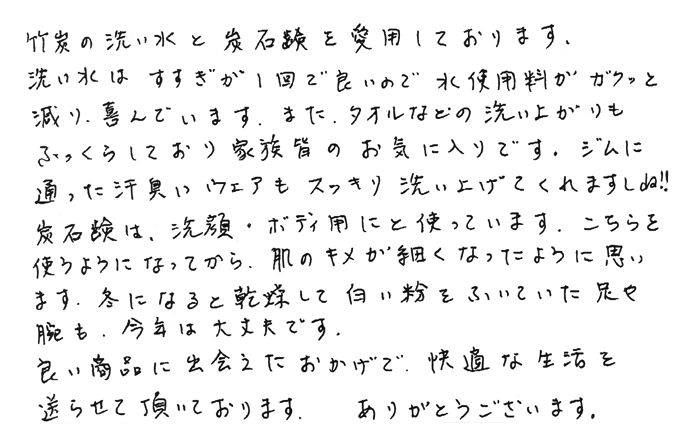 竹炭の洗い水と炭石鹸を愛用しております。
洗い水はすすぎが1回で良いので水使用料がガクッと
減り、喜んでいます。また、タオルなどの洗い上がりも
ふっくらしており家族皆のお気に入りです。ジムに
通った汗臭いウェアもスッキリ洗い上げてくれますしね!!
炭石鹸は、洗顔・ボディ用にと使っています。こちらを
使うようになってから、肌のキメが細くなったように思い
ます。冬になると乾燥して白い粉をふいていた足や
腕も、今年は大丈夫です。
良い商品に出会えたおかげで、快適な生活を
送らせて頂いております。 ありがとうございます。